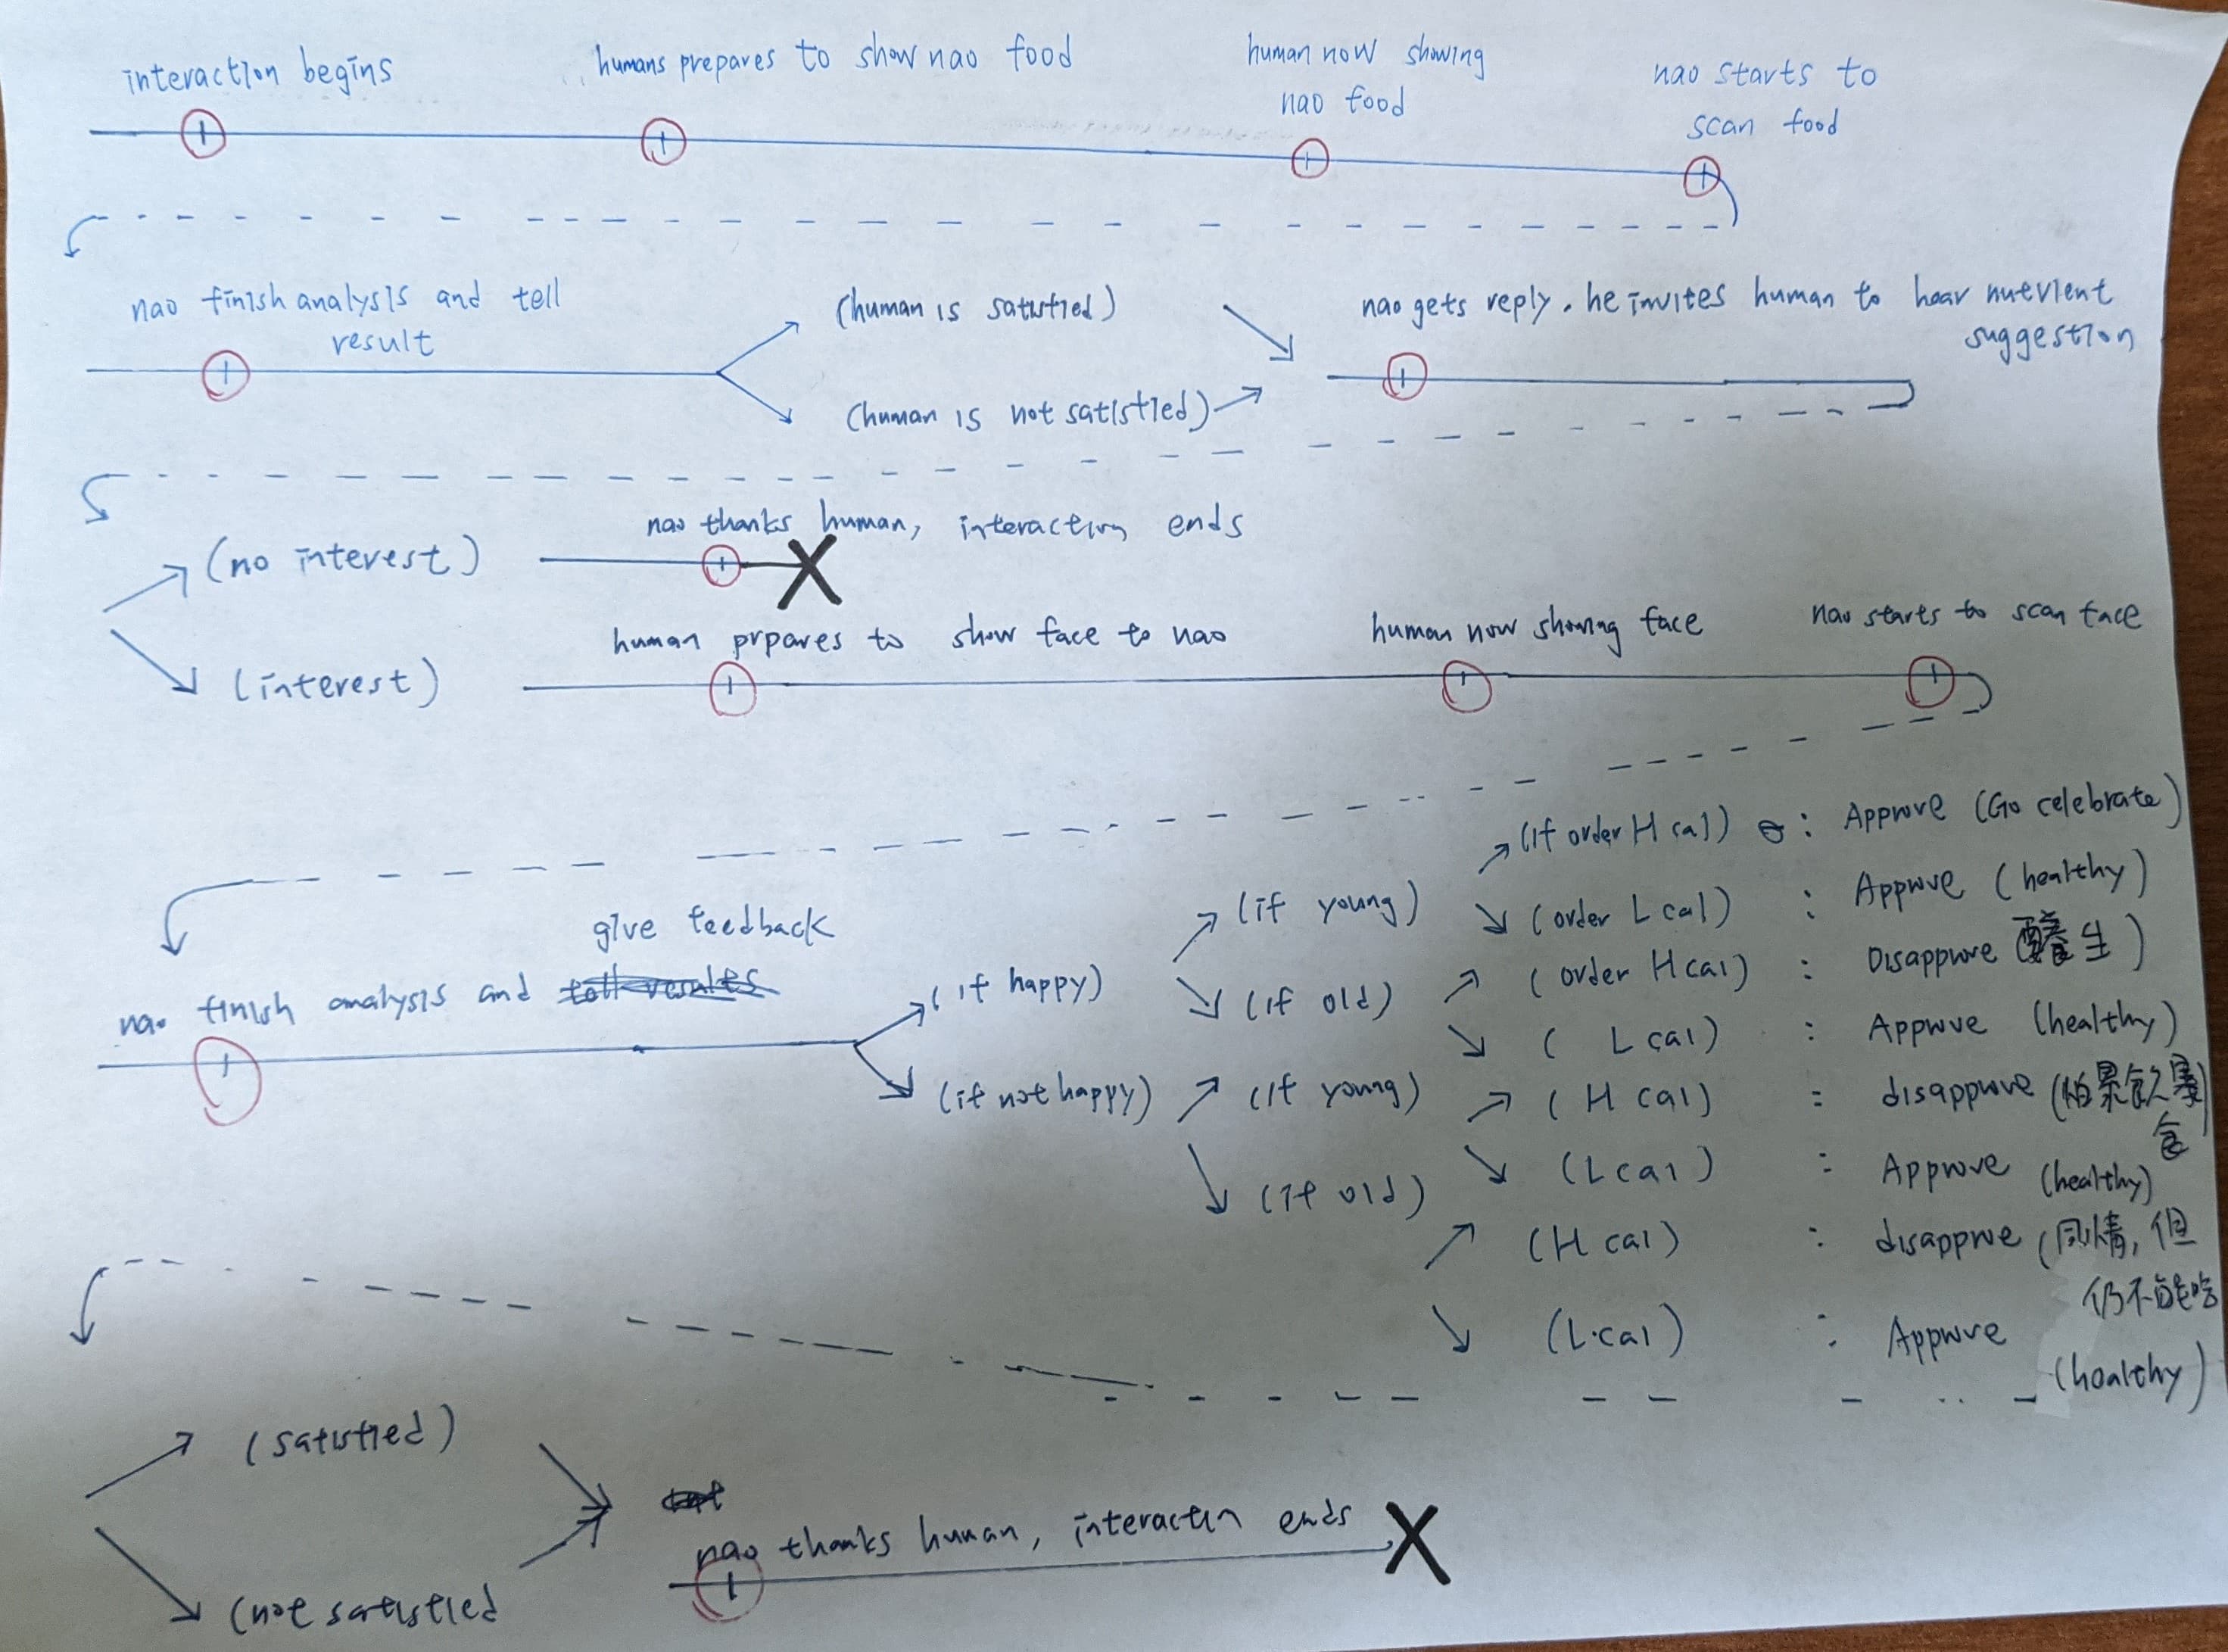 interaction begins
humans prepares to show nao food
human now showing
nao food
nao starts to
scan food
nao finish analysis and tell
result
(human is satisfied)
(human is not satisfied)
nao gets reply. he invites human to hear nutrient
suggestion
(no interest)
nao thanks human, interaction ends
(interest)
human prpares to show face to nao
human now showing face
nao starts to scan face
give feedback
nao finish analysis and tell results
(if happy)
(if not happy)
(if young)
(if old)
(if young)
(if old)
(if order H cal) : Approve (Go celebrate)
(order L cal) : Approve (healthy)
(order H cal) : Disapprove (養生)
( L cal) : Approve (healthy)
( H cal) : disapprove (怕暴飲暴
食)
(L cal) : Approve (healthy)
(H cal) : disapprove (同情, 但
仍不能吃
(L cal) : Approve
(healthy)
(satisfied)
(not satisfied
nao thanks human, interaction ends